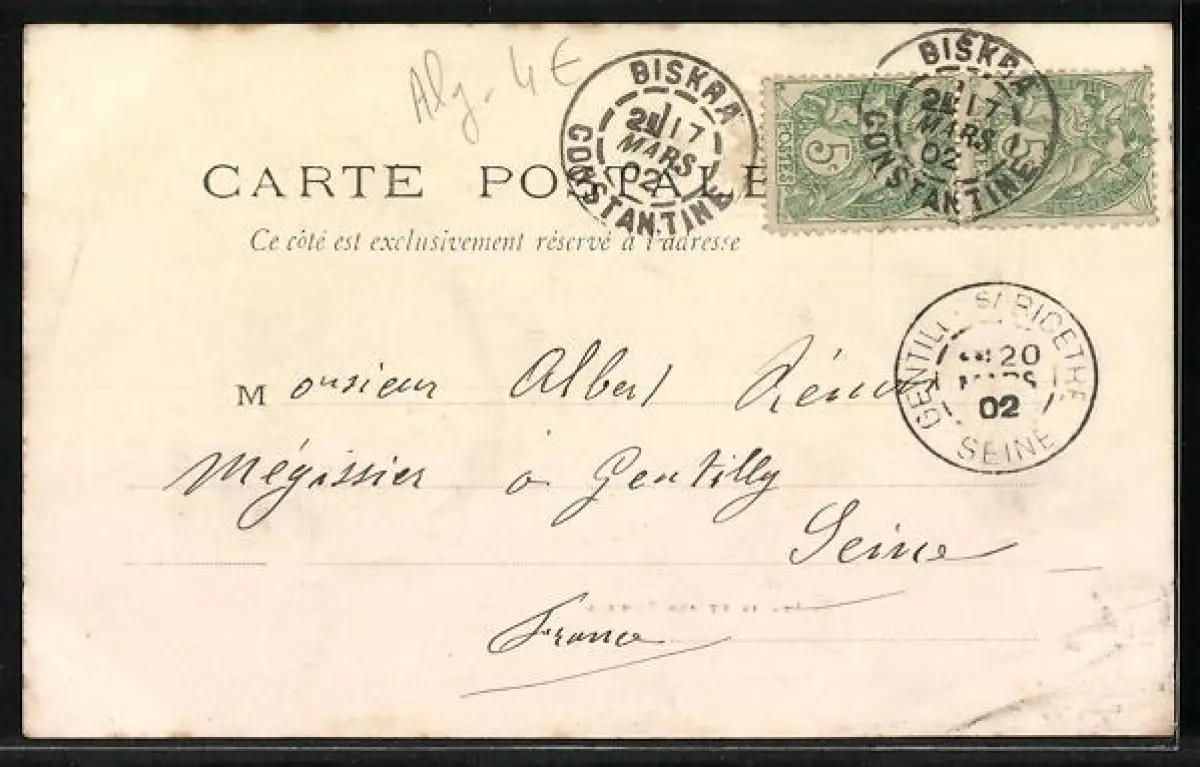 Alg. 4 €
BISKRA
17
MARS
02
CONSTANTINE
BISKRA
17
MARS
02
CONSTANTINE
5c
POSTES
5
CARTE POSTALE
Ce côté est exclusivement réservé à l'adresse
GENTILLY S/ BICETRE
20
MARS
02
SEINE
Monsieur Albert
Mégissier à Gentilly
Seine
France